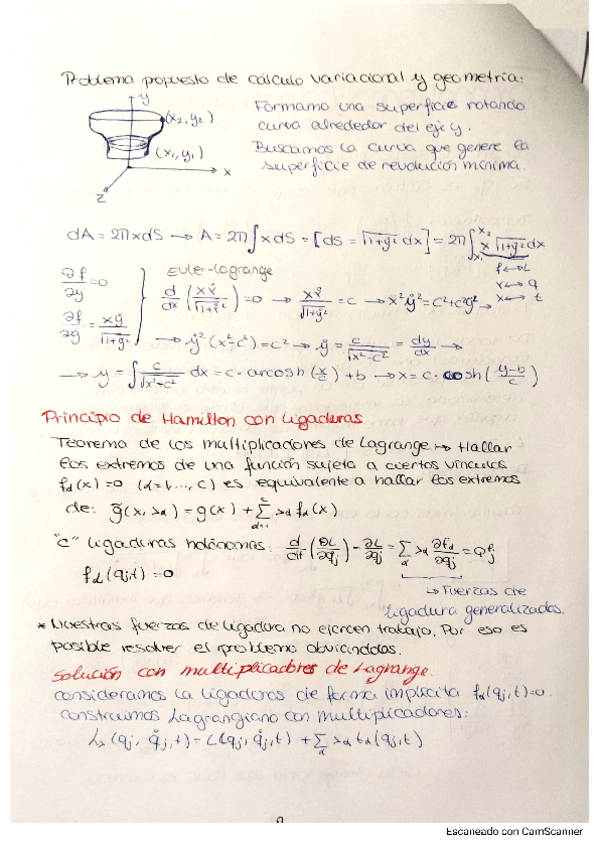 Problema propuesto de cálculo variacional y geometría:
y
(x₂, y₂)
(x₁, y₁)
x
z
Formamo una superficie rotando
curva alrededor del eje y.
Buscamos la curva que genere la
superficie de revolución mínima.
dA = 2π x dS → A = 2π ∫ x dS = [dS = √(1+ẏ²) dx] = 2π ∫_{x₁}^{x₂} x √(1+ẏ²) dx
f ↔ L
y ↔ q
x ↔ t
∂f/∂y = 0
∂f/∂ẏ = xẏ/√(1+ẏ²)
Euler-Lagrange
d/dx (xẏ/√(1+ẏ²)) = 0 → xẏ/√(1+ẏ²) = c → x²ẏ² = c² + c²ẏ² →
→ ẏ²(x²-c²) = c² → ẏ = c/√(x²-c²) = dy/dx →
→ y = ∫ c/√(x²-c²) dx = c · arcosh(x/c) + b → x = c · cosh((y-b)/c)
Principio de Hamilton con ligaduras
Teorema de los multiplicadores de Lagrange → Hallar
los extremos de una función sujeta a ciertos vínculos
fα(x) = 0 (α = 1, ..., c) es equivalente a hallar los extremos
de: g̃(x, λα) = g(x) + Σ_{α=1}^{c} λα fα(x)
"c" ligaduras holónomas: d/dt (∂L/∂q̇j) - ∂L/∂qj = Σ_α λα ∂fα/∂qj = Qj
fα(qj, t) = 0
→ Fuerzas de
ligadura generalizadas.
* Nuestras fuerzas de ligadura no ejercen trabajo. Por eso es
posible resolver el problema obviándolas.
Solución con multiplicadores de Lagrange.
consideramos la ligaduras de forma implícita fα(qj, t) = 0.
construimos Lagrangiano con multiplicadores:
Lλ(qj, q̇j, t) = L(qj, q̇j, t) + Σ_α λα fα(qj, t)
Escaneado con CamScanner